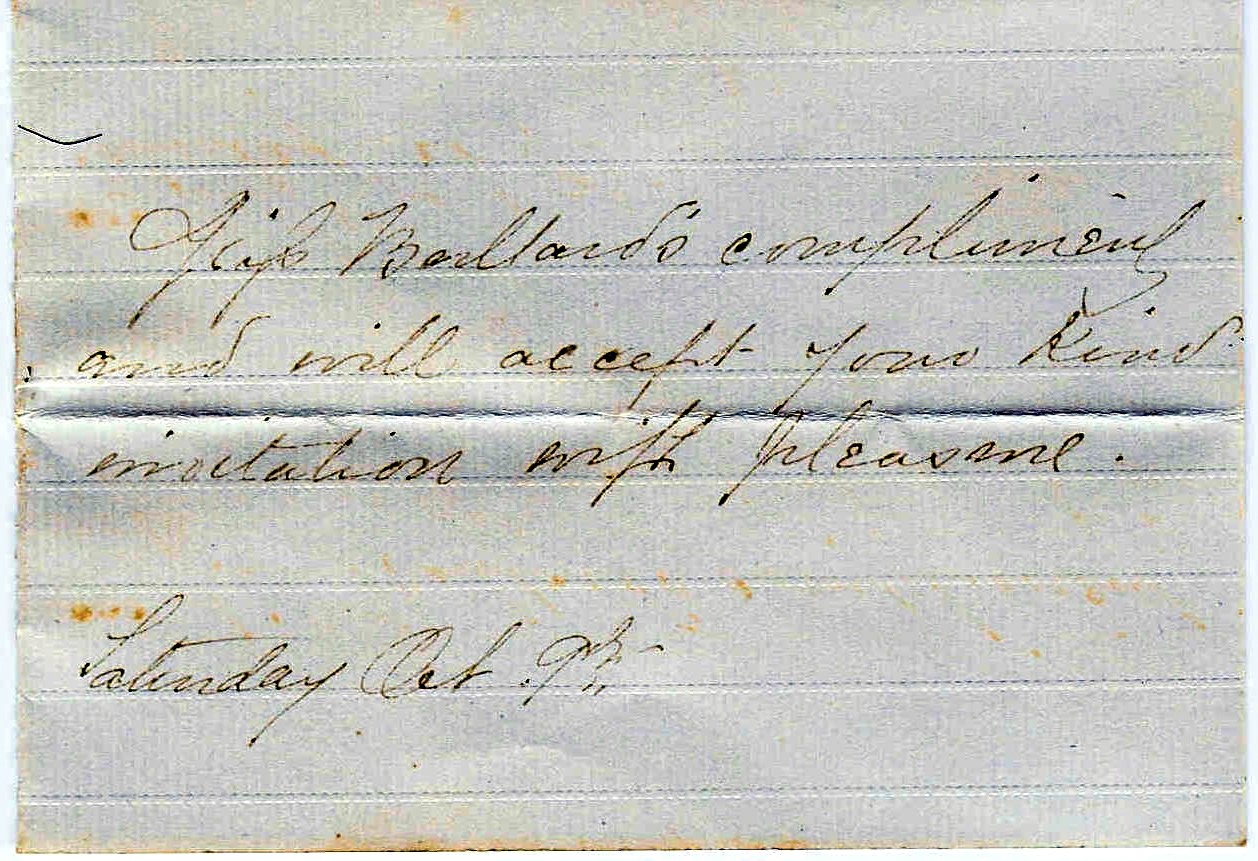 Miss Bullard's compliment
and will accept your kind
invitation with pleasure.
Saturday Oct. 9th